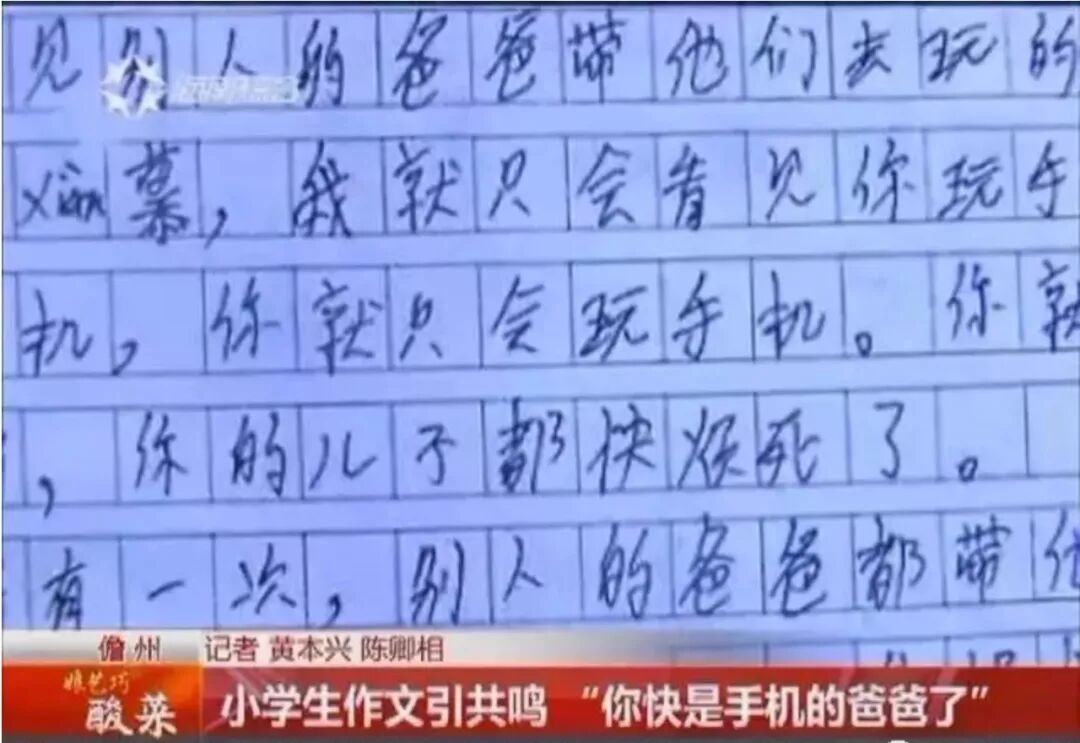 见别人的爸爸带他们去玩的
xian慕,我就只会看见你玩手
机,你就只会玩手机。你就
,你的儿子都快烦死了。
有一次,别人的爸爸都带他
儋州 记者 黄本兴 陈卿相
酸菜
小学生作文引共鸣 “你快是手机的爸爸了”